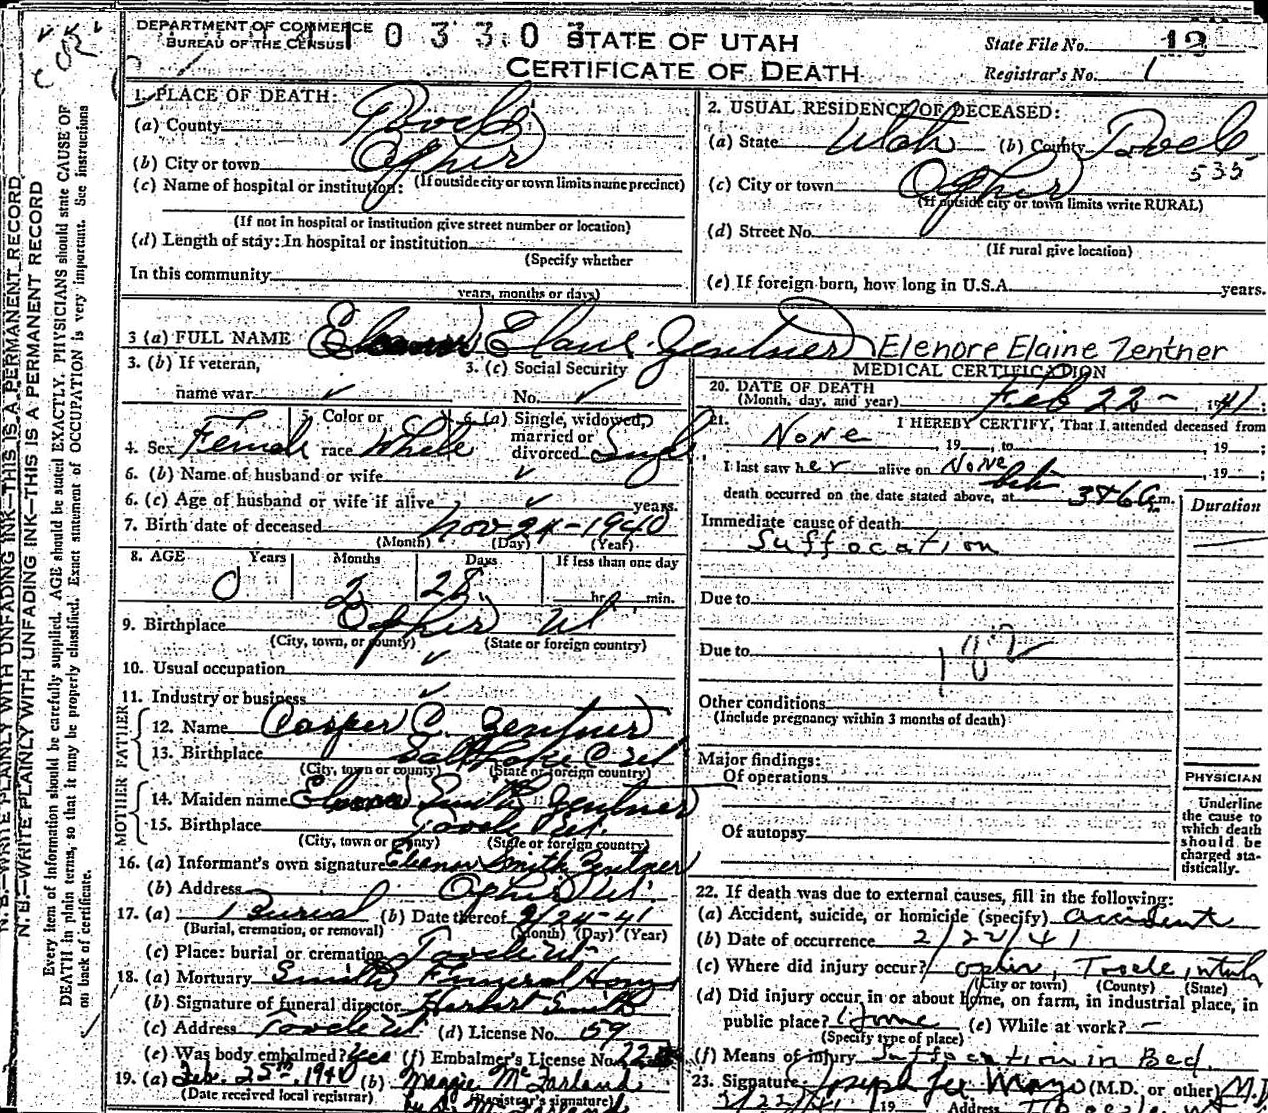 DEPARTMENT OF COMMERCE
BUREAU OF THE CENSUS
0 3 3 0 3
STATE OF UTAH
CERTIFICATE OF DEATH
State File No. 12
Registrar's No. 1
1. PLACE OF DEATH:
(a) County Tooele
(b) City or town Ophir
(c) Name of hospital or institution: (If outside city or town limits name precinct)
(If not in hospital or institution give street number or location)
(d) Length of stay: In hospital or institution
(Specify whether
In this community
years, months or days)
2. USUAL RESIDENCE OF DECEASED:
(a) State Utah (b) County Tooele
535
(c) City or town Ophir
(If outside city or town limits write RURAL)
(d) Street No.
(If rural give location)
(e) If foreign born, how long in U.S.A. years.
3 (a) FULL NAME Eleanor Elaine Zentner Elenore Elaine Zentner
3. (b) If veteran,
name war ✓
3. (c) Social Security
No. ✓
4. Sex Female
5. Color or
race White
6. (a) Single, widowed,
married or
divorced Single
6. (b) Name of husband or wife ✓
6. (c) Age of husband or wife if alive ✓ years.
7. Birth date of deceased Nov 24 - 1940
(Month) (Day) (Year)
8. AGE Years Months Days If less than one day
0 2 28 hr. min.
9. Birthplace Ophir Ut
(City, town, or county) (State or foreign country)
10. Usual occupation ✓
11. Industry or business ✓
FATHER
12. Name Casper C. Zentner
13. Birthplace Salt Lake C Ut
(City, town or county) (State or foreign country)
MOTHER
14. Maiden name Smith Zentner
15. Birthplace Tooele Ut.
(City, town or county) (State or foreign country)
16. (a) Informant's own signature Eleanor Smith Zentner
(b) Address Ophir Ut.
17. (a) Burial (b) Date thereof 2/24-41
(Burial, cremation, or removal) (Month) (Day) (Year)
(c) Place: burial or cremation Tooele Ut
18. (a) Mortuary Smith Funeral Home
(b) Signature of funeral director Herbert Smith
(c) Address Tooele Ut (d) License No. 159
(e) Was body embalmed? Yes (f) Embalmer's License No. 22
19. (a) Feb. 25th, 1940 (b) Maggie McFarland
(Date received local registrar) (Registrar's signature)
MEDICAL CERTIFICATION
20. DATE OF DEATH
(Month, day, and year) Feb 22 - , 1941;
21. I HEREBY CERTIFY, That I attended deceased from
None , 19 , to , 19 ;
I last saw her alive on None , 19 ;
death occurred on the date stated above, at bet. 3 & 6 a.m.
Duration
Immediate cause of death
Suffocation
Due to
Due to
182
Other conditions
(Include pregnancy within 3 months of death)
Major findings:
Of operations
Of autopsy
PHYSICIAN
Underline
the cause to
which death
should be
charged sta-
tistically.
22. If death was due to external causes, fill in the following:
(a) Accident, suicide, or homicide (specify) accident
(b) Date of occurrence 2/22/41
(c) Where did injury occur? Ophir, Tooele, Utah
(City or town) (County) (State)
(d) Did injury occur in or about home, on farm, in industrial place, in
public place? Home (e) While at work? -
(Specify type of place)
(f) Means of injury Suffocation in Bed
23. Signature Joseph Lee Mayo (M.D. or other) M.D.
2/22/41 19 Address Tooele
N. B.—WRITE PLAINLY WITH UNFADING INK—THIS IS A PERMANENT RECORD
Every item of information should be carefully supplied. AGE should be stated EXACTLY. PHYSICIANS should state CAUSE OF
DEATH in plain terms, so that it may be properly classified. Exact statement of OCCUPATION is very important. See instructions
on back of certificate.